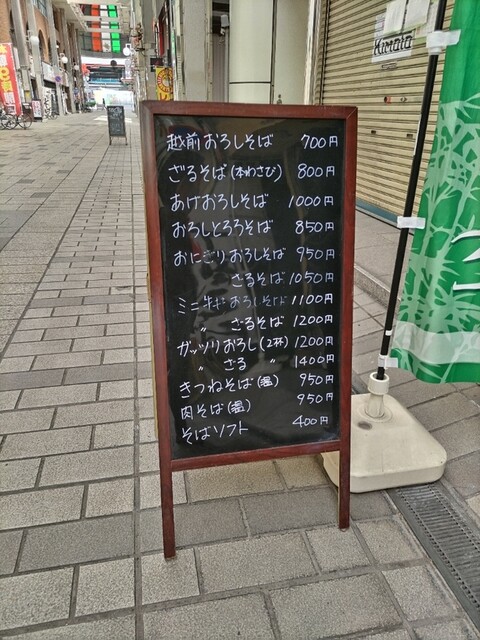 越前おろしそば 700円
ざるそば(本わさび) 800円
あげおろしそば 1000円
おろしとろろそば 850円
おにぎりおろしそば 950円
ざるそば 1050円
ミニ牛丼おろしそば 1100円
〃 ざるそば 1200円
ガッツリおろし(2杯) 1200円
〃 ざる 〃 1400円
きつねそば(温) 950円
肉そば(温) 950円
そばソフト 400円